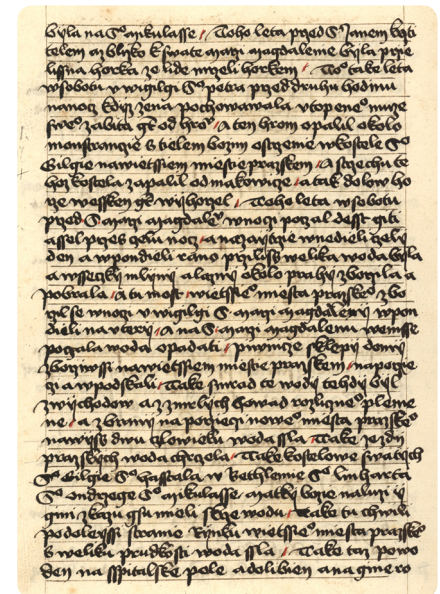 byla na S° mikulasse / Toho leta przed S° Janem krzti
telem az blizko k swate marzi magdalenie byla prze
lissna horka ze lide mrzeli horkem / To° take leta
w sobotu w wigilgi S° petra przed druhu hodinu
na nocz kdyz zena pochowawala vtopene° muze
swe° zabita gt od hro° / A ten hrom opalil okolo
monstranczie s tielem bozim ostrzenie w kostele S°
Gilgie na wietssiem miestie prazskem / A strzechu te
hoz kostela zapalil od makowicze / a tak dolow ho
rze wessken gt wyhorzel / Toho leta w sobotu
przed S° marzi magdale° w noczi poczal dessť giti
a ssel przes czelu nocz / a nazaytrzie w nedieli czely
den a w pondieli rano prziliss welika woda byla
a wsseczky mlyny a laznie okolo prahy zborzila a
pobrala / a tu most wietssie° miesta prazske° zbo
rzil se w noczi w wigilgi S. marzi magdaleny w pon
dieli na vterý / A na S. marzi magdalenu wemsse
poczala woda opadati / piwnicze sklepy domy
zborziwssi na wietssiem miestie prazskem / na porzie
czi a w podskali / Take smrad te wody tehdy byl
z wychodow a z zmrlych howad rozliczne° pleme
ne / a z brany na porzieczi nowe° miesta prazske°
na wyss dwu czlowieku woda ssla / Take ze zdy
prazskych woda chrzela / Take kostelowe swatych
S° Gilgie S° hasstala w Bethlemie S° linharta
S° ondrzege S° mikulasse matky bozie na luzi y
gini z kazu gsu mieli skrze wodu / Take tu chwili
po dolegssi stranie Rynku wietssie° miesta prazske°
s weliku prudkosti woda ssla / Take taz powo
den na sspitalske pole a do libien a na gine ro